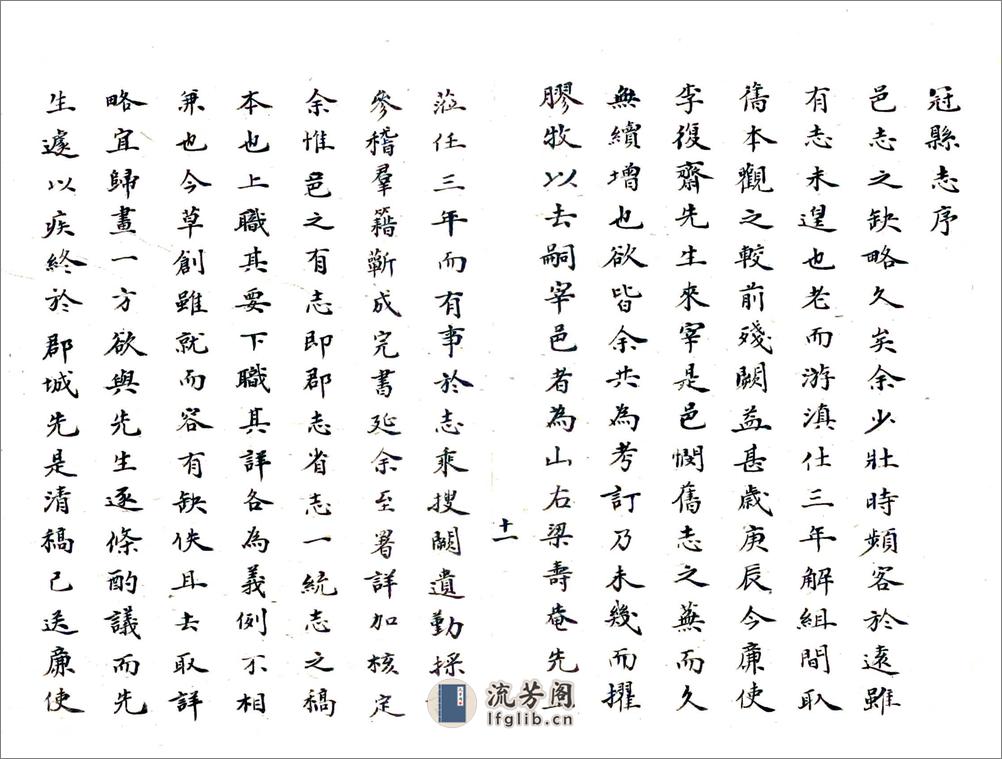 冠縣志序
邑志之缺略久矣余少壯時頻客於遠雖
有志未遑也老而游滇仕三年解組間取
舊本觀之較前殘闕益甚歲庚辰今廉使
李復齋先生來宰是邑憫舊志之蕪而久
無續增也欲皆余共為考訂乃未幾而擢
膠牧以去嗣宰邑者為山右梁壽菴先
十一
蒞任三年而有事於志乘搜闕遺勤採
參稽羣籍蘄成完書延余至署詳加核定
余惟邑之有志即郡志省志一統志之稿
本也上職其要下職其詳各為義例不相
兼也今草創雖就而容有缺佚且去取詳
略宜歸畫一方欲與先生逐條酌議而先
生遽以疾終於郡城先是清稿已送廉使
流芳阁
lfglib.cn